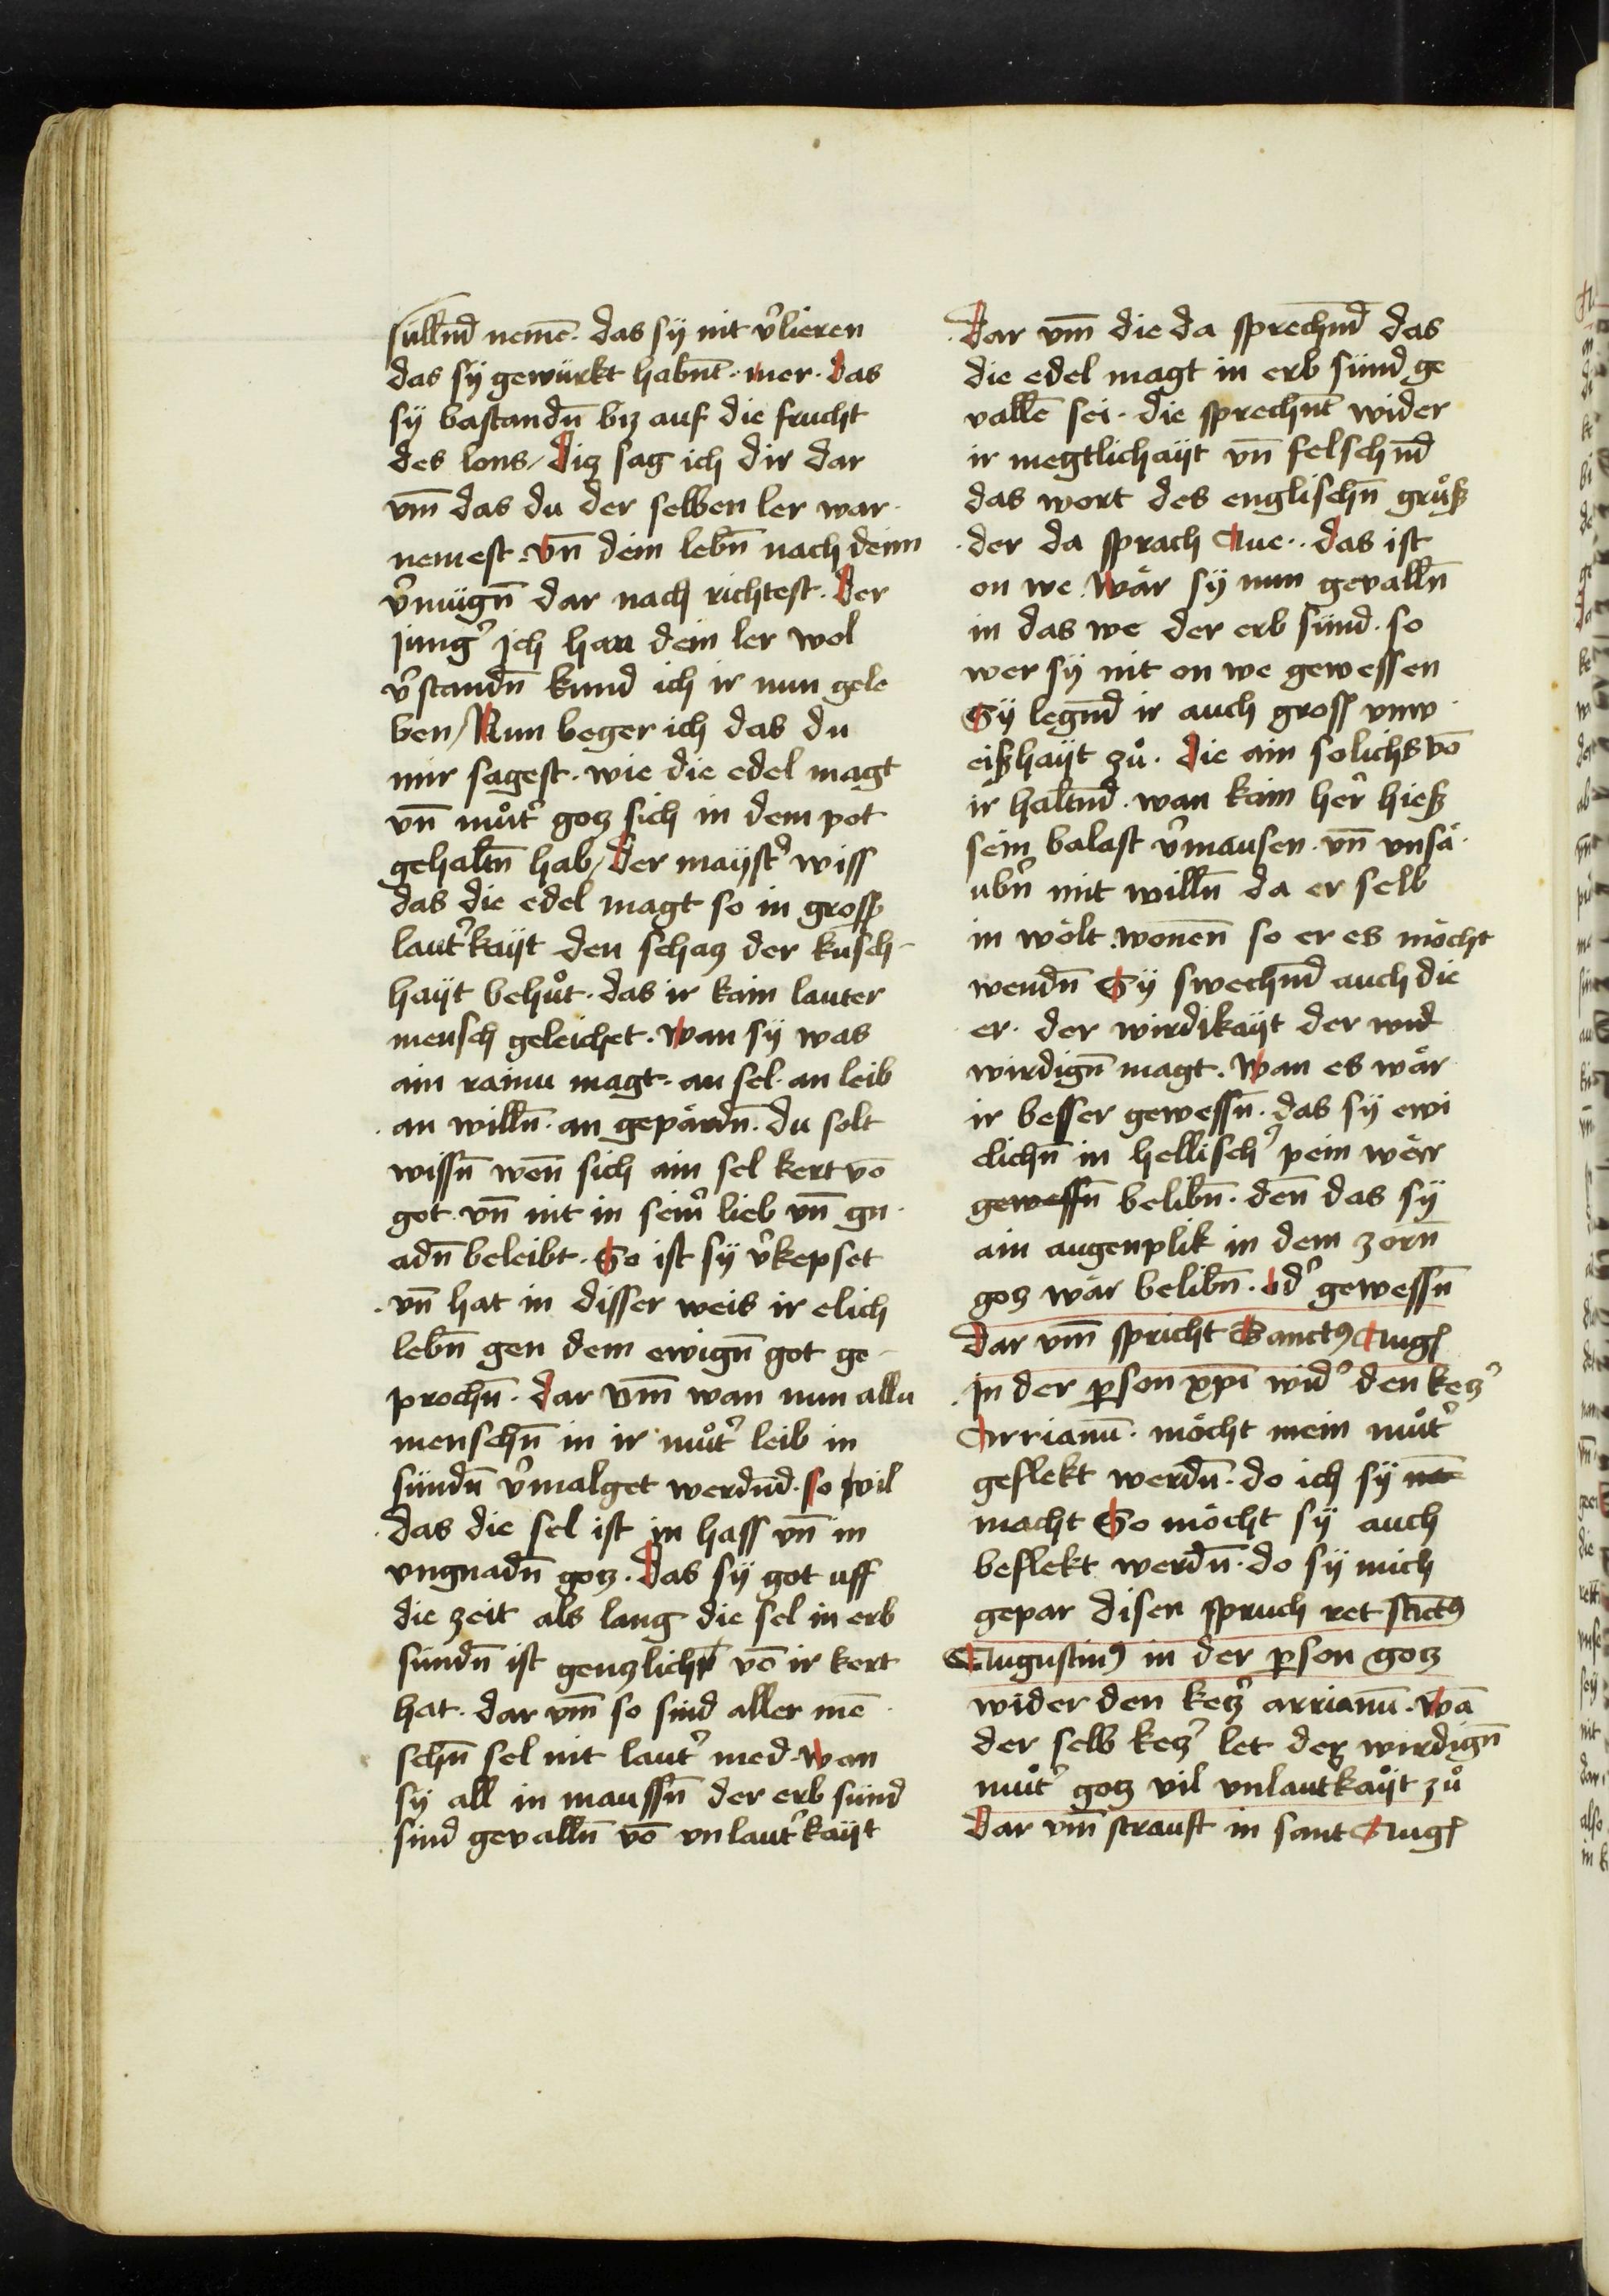 süllnd nemē · das sy nit v̉lieren
das sy gewürkt habnt · mer · das
sy bastandn̄ biz auf die frucht
des lons / diz sag ich dir dar
vm̄ das du der selben ler war ·
nemest · vn̄ dein lebn̄ nach deim
v̉mügn̄ dar nach richtest · der
jungꝰ jch han dein ler wol
v̉standn̄ kund ich ir nun gele
ben / Nun beger ich das du
mir sagest · wie die edel magt
vn̄ muͦtꝰ gotz sich in dem pot
gehaltn̄ hab / der maystꝰ wiss
das die edel magt so in grosß
lautꝰkayt den schatz der kusch-
hayt behuͦt · das ir kain lauter
mensch geleichet · wan sy was
ain rainu magt · an sel · an leib
· an willn̄ · an gepärdn̄ · du solt
wissn̄ wen̄ sich ain sel kert vō
got · vn̄ nit in seinꝰ lieb vn̄ gn ·
adn̄ beleibt · So ist sy v̉kepset
· vn̄ hat in disser weis ir elich
lebn̄ gen dem ewign̄ got ge-
prochn̄ · dar vm̄ wan nun allu
menschn̄ in ir muͦtꝰ leib in
sündn̄ v̉malget werdnd · so wil
· das die sel ist in hass vn̄ in
vngnadn̄ gotz · das sy got uff
die zeit als lang die sel in erb
sündn̄ ist gentzlich vō ir kert
hat · dar vm̄ so sind aller mē ·
schn̄ sel nit lautꝰ med · wan
sy all in maussn̄ der erb sünd
sind gevalln̄ vō vnlautꝰkayt
· dar vm̄ die da sprechnd das
die edel magt in erb sünd ge
vallē sei · die sprechnt wider
ir megtlichayt vn̄ felschnd
das wort des englischn̄ gruͦß
· der da sprach Aue · · das ist
on we · wär sy nun gevalln̄
in das we der erb sünd · so
wer sy nit on we gewessen
Sy legnd ir auch gross vnw ·
eißhayt zuͦ · die ain solichs vō
ir haltnd · wan kain herꝰ hieß
sein balast v̉mausen · vn̄ vnsä ·
ubn̉ mit willn̄ da er selb
in wölt wonen̄ so er es möcht
wendn̄ Sy swechnd auch die
· er · der wirdikayt der wird
wirdign̄ magt · wan es wär
ir besser gewessn̄ · das sy ewi
clichn̄ in hellischꝰ pein wërr
gewessn̄ belibn̄ · den̄ das sy
ain augenplik in dem zorn̄
gotz wär belibn̄ · odꝰ gewessn̄
dar vm̄ spricht Sanctꝰ Augꝰ
· jn der ꝑson xp̄i widꝰ den ketzꝰ
Arrianū · möcht mein muͦtꝰ
geflekt werdn̄ · do ich sy
macht So möcht sy auch
beflekt werdn̄ · do sy mich
gepar disen spruch ret sanctꝰ
Augustinꝰ in der ꝑson gotz
wider den ketzꝰ arrianū · wā
der selb ketzꝰ let der wirdign̄
muͦtꝰ gotz vil vnlautkayt zuͦ
dar vm̄ strauft in sant Augꝰ